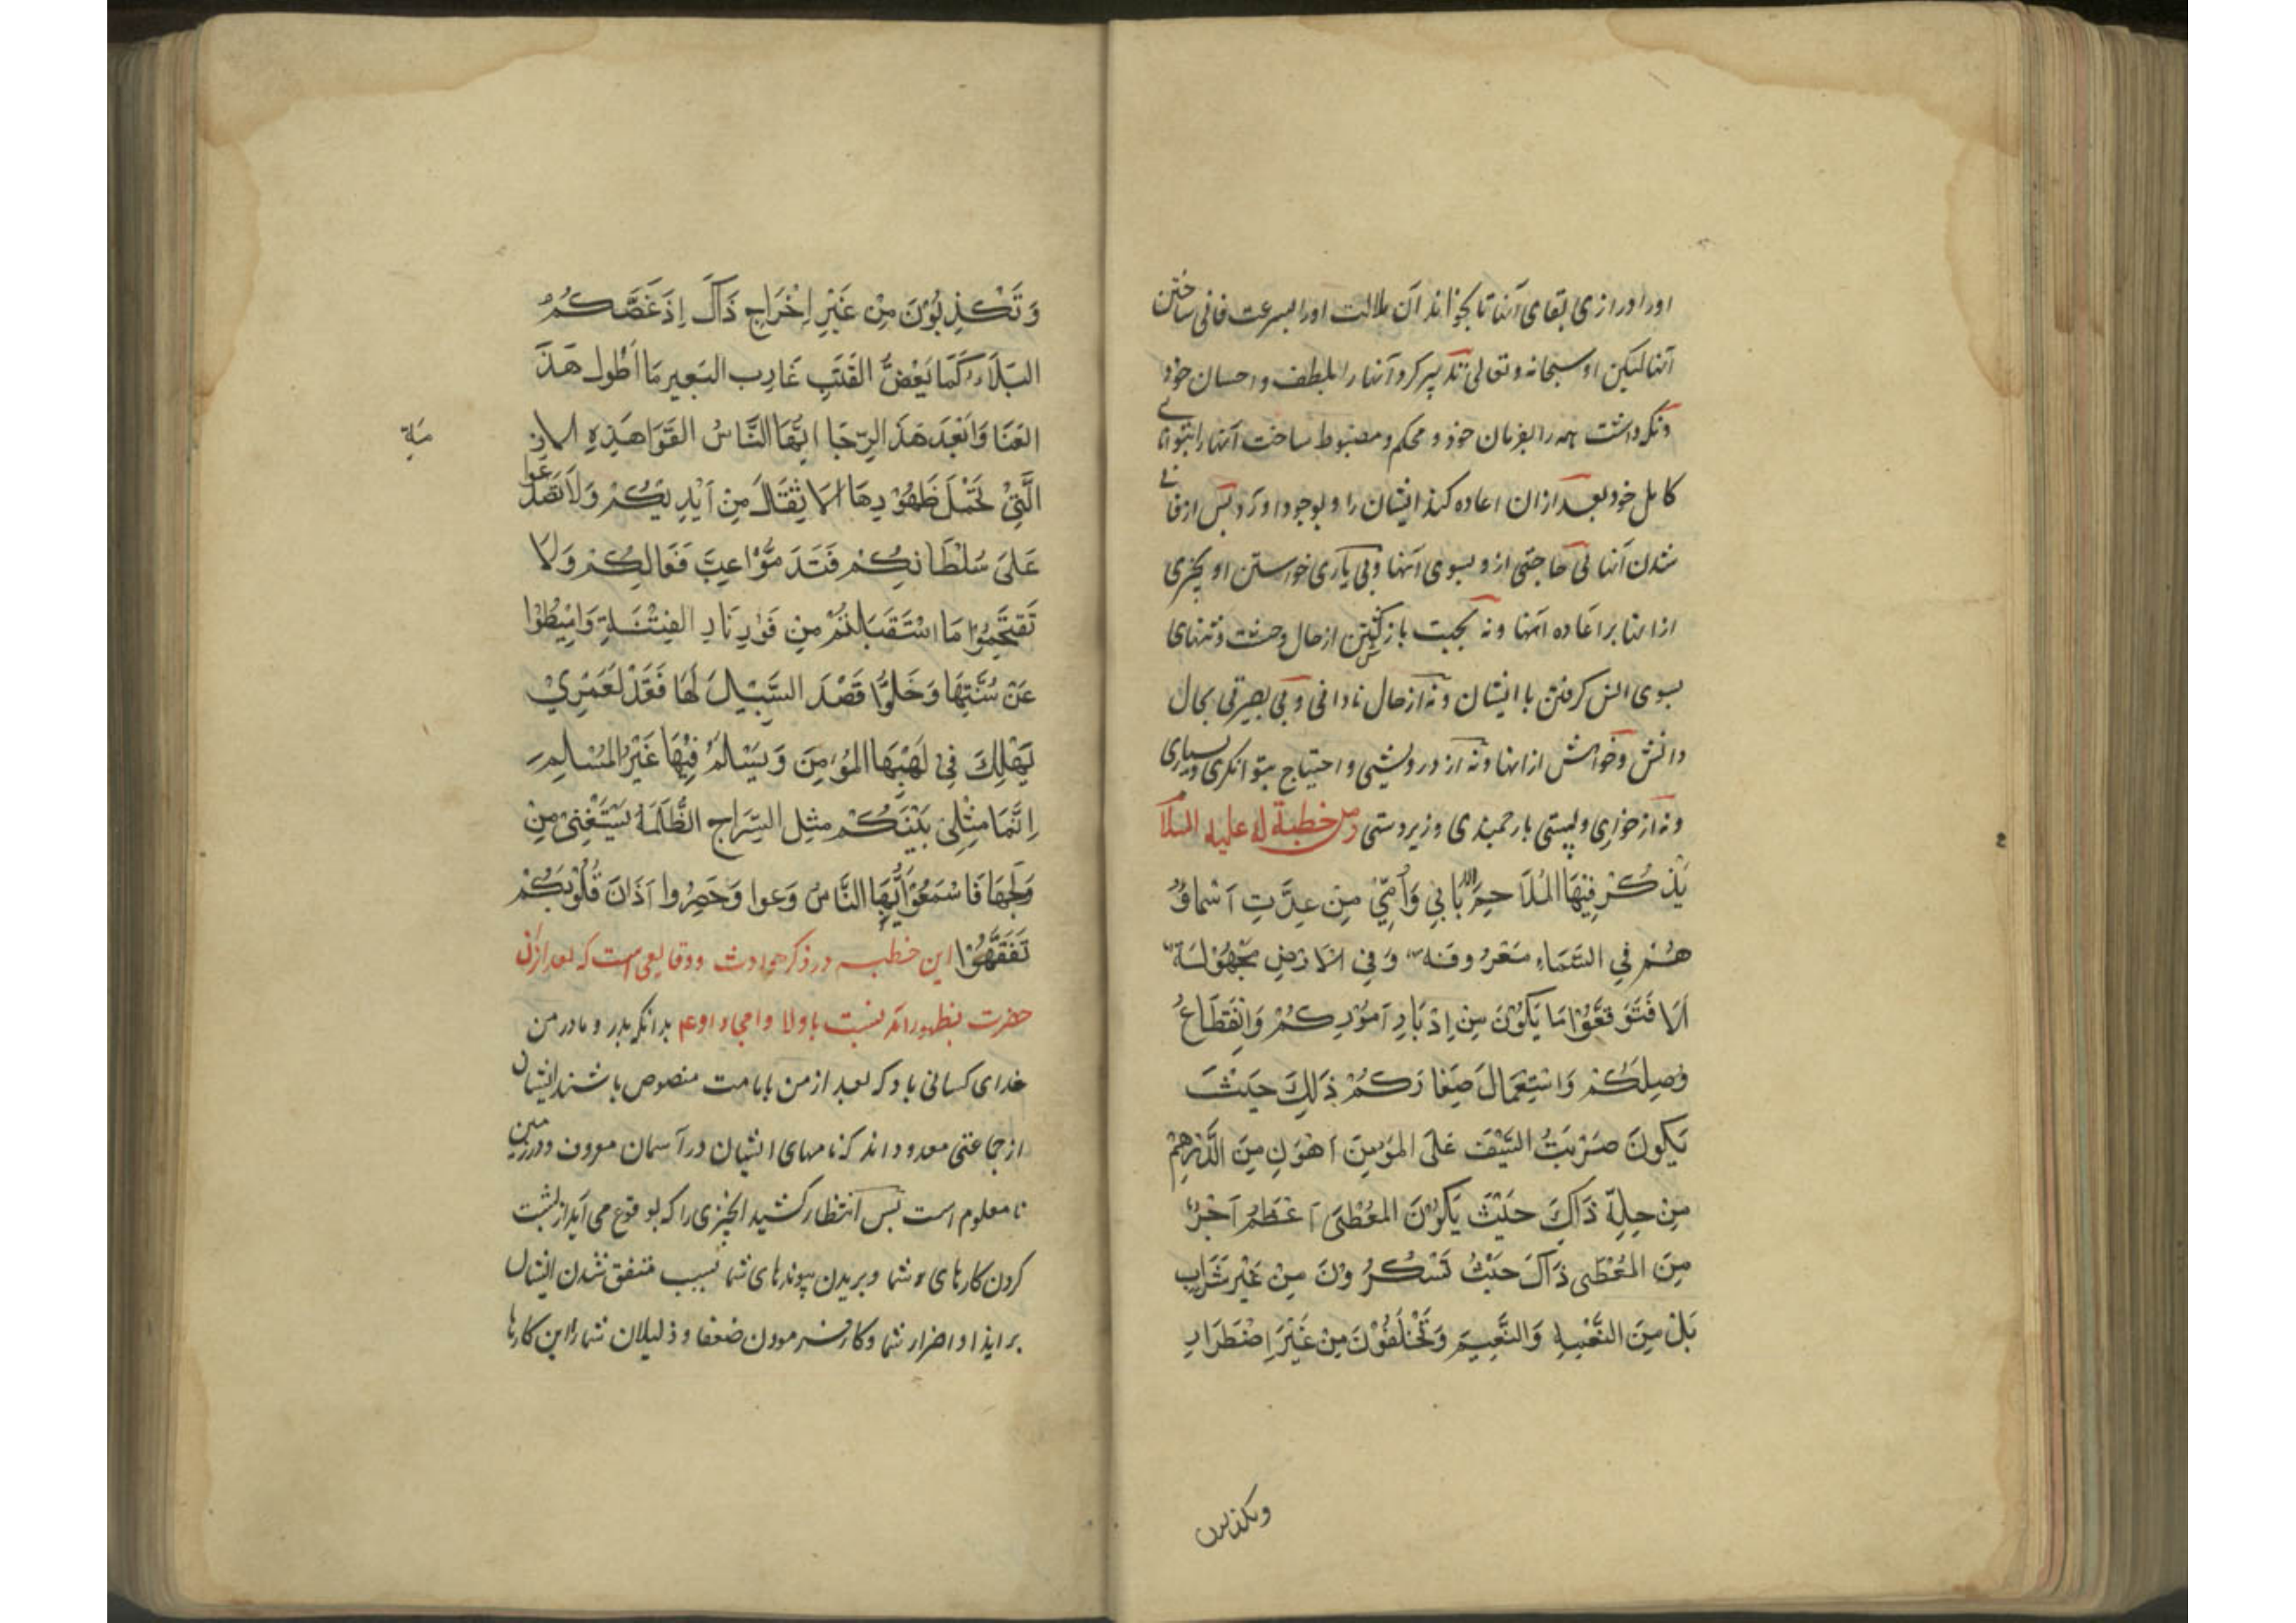 او را درازی بقای آنها تا بجواند آن ملالت او را بسرعت فانی ساختن
آنها لیکن او سبحانه و تعالی تدبیر کرد آنها را بلطف و احسان خود
و نگهداشت همه را بفرمان خود و محکم و مضبوط ساخت آنها را بتوانائی
کامل خود بعد از آن اعاده کند ایشان را و بوجود آورد پس از فانی
شدن آنها بی حاجتی از و بسوی آنها و بی یاری خواستن او بچیزی
از اینها بر اعاده آنها و نه بجهت باز گشتن از حال وحشت و تنهای
بسوی انس گرفتن با ایشان و نه از حال نادانی و بی بصیرتی بحال
دانش و خواهش از اینها و نه از درویشی و احتیاج بتوانگری و بسیاری
و نه از خواری و پستی بارجمندی و زبردستی ومن خطبة له علیه السلا
يَذْكُرْ فِيهَا المُلَاحِمَ الا بَابِي وَأُمِّيْ مِنْ عِدَّتِ اَسْماؤُ
هُمْ فِي السَّمَاءِ مَعْرُوفَه وَفِي الاَرْضِ مَجْهُوْلَة
اَلَا فَتَوَقَعُّوْا مَا يَكُوْنُ مِنْ اِدْبَارِ اَمُوْرِكُمْ وَانْقِطَاعُ
وُصِلِكُمْ وَاسْتِعْمَالَ صِغَارَكُمْ ذَلِكَ حَيْثَ
يَكُونَ ضَرْبَتُ السَّيْفَ عَلَى المَوْمِنَ اَهْوَنِ مِنَ الدِّرْهِمْ
مِنْ حِلِّهِ ذَاكَ حَيْثَ يَكُوْنَ المُعْطَى اَعْظَمُ اَجْرً
مِنَ المُعْطَى ذَاكَ حَيْثُ تَسْكُرُوْنَ مِنْ غَيْرِ شَرَابٍ
بَلْ مِنَ النَّعْمِةِ وَالنَّعِيْمِ وَتَحْلَفُوْنَ مِنْ غَيْرِ اِضْطَرَارِ
وتکذبون
وَتَكْذِبُوْنَ مِنْ غَيْرِ اِخْرَاجٍ ذَاكَ اِذَ غَصَّكُمُ
البَلَاء كَمَا يَعْضُّ القَتَبِ غَارِب البَعِير مَا اَطْوَل هَذَ
العَنَا وَاَبْعَدَ هَذَ الرَّجَا ايُّهَا النَّاسُ القَوَا هَذِهِ الازمة
الَّتِيْ تَحْمِلَ ظَهُوْرِهَا الاَثِقَالَ مِنْ اَيْدِيْكُمْ وَلَا تَصَدَّعوا
عَلَى سُلْطَانِكُمْ فَتَذَمُّوْا غِبَّ فَعَالِكُمْ وَلَا
تَقْتَحِمُوْا مَا اسْتَقْبَالْتُمْ مِنْ فَوْرِ نَارِ الفِتْنَةِ وَاَمِيْطُوْا
عَنْ سُنَنِهَا وَخَلُوُّا قَصْدَ السَّبِيْلَ لَهَا فَقَدْ لَعَمْرِيْ
يَهْلِكَ فِيْ لَهَبِهَا المُوْمِنَ وَيَسْلَمُ فِيْهَا غَيْرُ المُسْلِمِ
اِنَّمَا مِثْلِيْ بَيْنَكُمْ مِثِل السِّرَاجِ الظُّلْمَةِ يَسْتَغْنِى مِنْ
وَلَجَهَا فَاسْمَعُوْا اَيُّهَا النَّاسُ وَعوا وَحَضِرُوا آذَانَ قُلُوْبِكُمْ
تَفَقَّهُوْا این خطبه در ذکر حوادث و وقایعی است که بعد از آن
حضرت بظهور آمد نسبت باولا و امجاد او عم بدانکه پدر و مادر من
فدای کسانی باد که بعد از من بامامت منصوص باشند ایشان
از جماعتی معدوداند که نامهای ایشان در آسمان معروف و در زمین
نا معلوم است پس انتظار کشید انچیزی را که بوقوع می آید از پشت
کردن کارهای شما و بریدن پیوندهای شما بسبب متفق شدن ایشان
بر ایذا و اضرار شما و کار فرمودن ضعفا و ذلیلان شما را این کارها